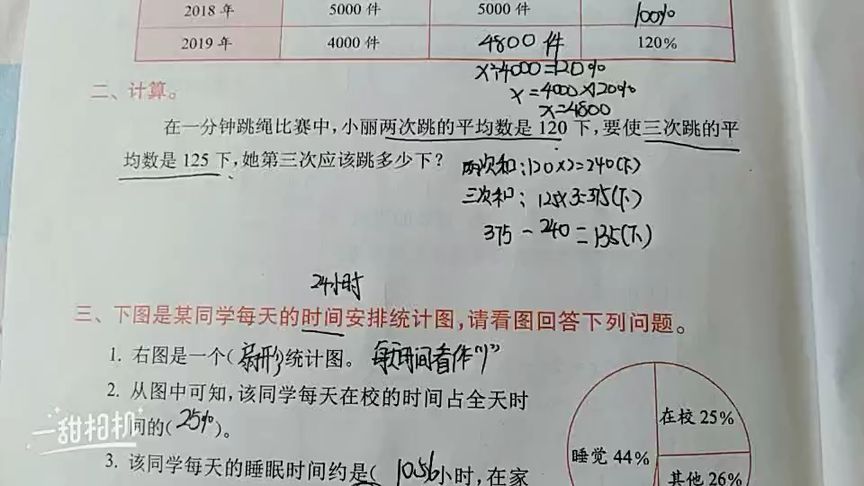 2018 年 5000 件 5000 件 100%
2019 年 4000 件 4800 件 120%
x÷4000=120%
x=4000×120%
x=4800
二、计算。
在一分钟跳绳比赛中,小丽两次跳的平均数是 120 下,要使三次跳的平
均数是 125 下,她第三次应该跳多少下?
两次和:120×2=240(下)
三次和: 125×3=375(下)
375-240=135(下)
24小时
三、下图是某同学每天的时间安排统计图,请看图回答下列问题。
1. 右图是一个(扇形)统计图。 每天时间看作"1"
2. 从图中可知,该同学每天在校的时间占全天时
间的(25%)。
3. 该同学每天的睡眠时间约是( 10.56小时,在家
在校 25%
睡觉 44%
其他 26%
一甜相机